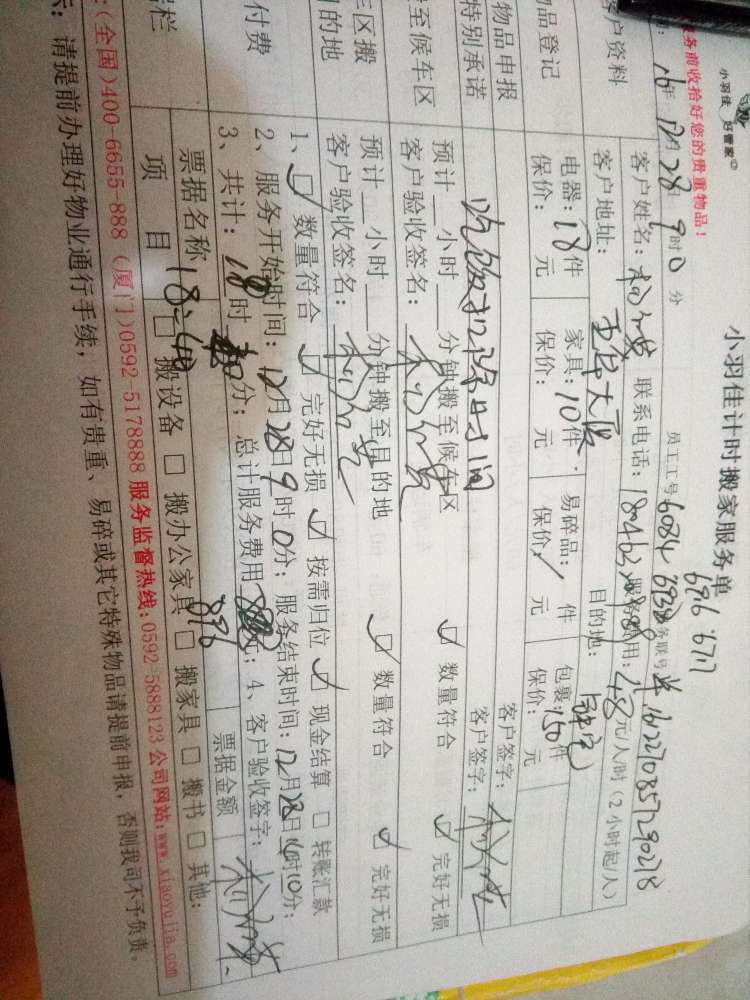 小羽佳 好管家
小羽佳计时搬家服务单
696 6717
服务前收拾好您的贵重物品!
16年 12月 28日 9时0分
员工工号 6084
务联号
客户资料
客户姓名:
联系电话:
费用: 48元/人/时(2小时起/人)
客户地址:
目的地:
物品登记
电器: 18件
家具: 10件
易碎品: / 件
包裹: 150件
保价: 元
保价: 元
保价: / 元
保价: 元
物品申报
特别承诺
吃饭扣除时间
客户签字:
客户签字:
至候车区
预计 小时 分钟搬至候车区
客户验收签名:
☑ 数量符合
☑ 完好无损
车区搬
目的地
预计 小时 分钟搬至目的地
客户验收签名:
☑ 数量符合
☑ 完好无损
付费
1、☑ 数量符合 ☑ 完好无损 ☑ 按需归位 ☑ 现金结算 □ 转账汇款
2、服务开始时间: 12月28日9时0分; 服务结束时间: 12月28日 时10分;
3、共计: 18时 分; 总计服务费用 元; 4、客户验收签字:
896
票据名称
票据金额
项 目
□ 搬设备 □ 搬办公家具 □ 搬家具 □ 搬书 □ 其他:
:(全国)400-6655-888 (厦门)0592-5178888 服务监督热线:0592-5888123 公司网站:www.xiaoyujia.com
: 请提前办理好物业通行手续, 如有贵重、易碎或其它特殊物品请提前申报, 否则我司不予负责。